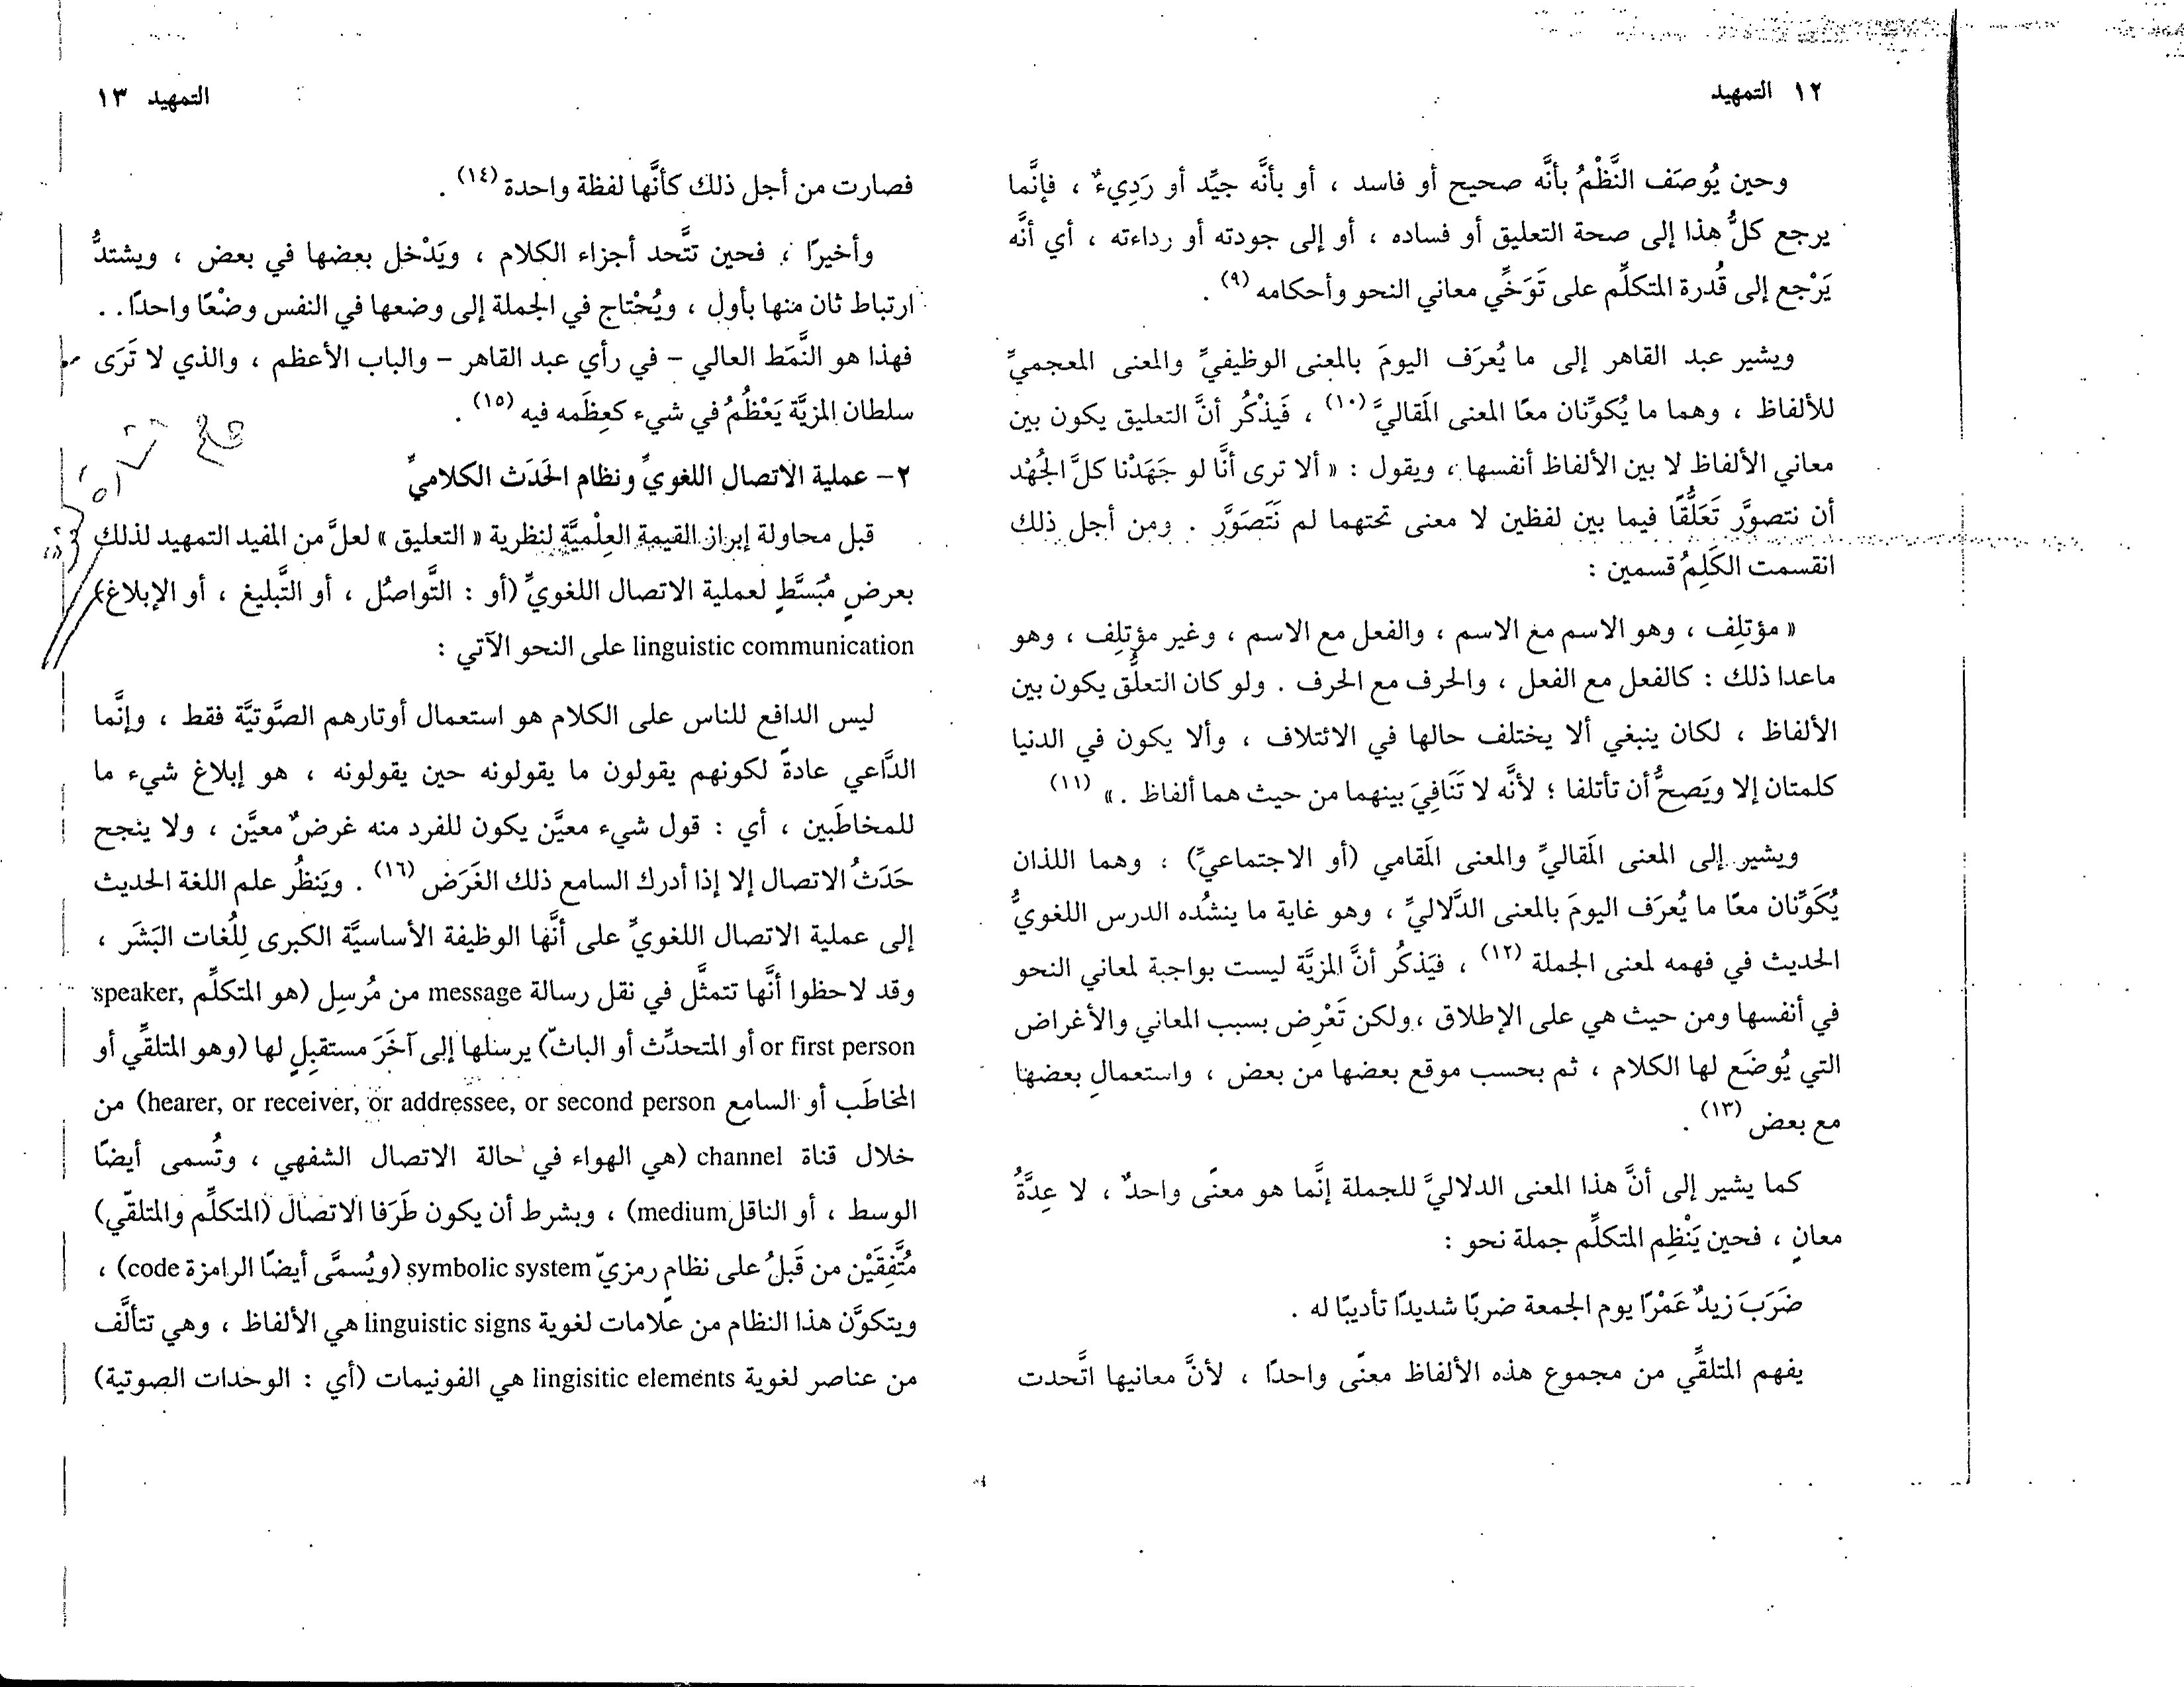 ١٢ التمهيد
وحين يُوصَف النَّظْمُ بأنَّه صحيح أو فاسد ، أو بأنَّه جيِّد أو رَدِيءٌ ، فإنَّما
يرجع كلُّ هذا إلى صحة التعليق أو فساده ، أو إلى جودته أو رداءته ، أي أنَّه
يَرْجع إلى قُدرة المتكلِّم على تَوَخِّي معاني النحو وأحكامه (٩) .
ويشير عبد القاهر إلى ما يُعرَف اليومَ بالمعنى الوظيفيِّ والمعنى المعجميِّ
للألفاظ ، وهما ما يُكوِّنان معًا المعنى المَقاليَّ (١٠) ، فَيذْكُر أنَّ التعليق يكون بين
معاني الألفاظ لا بين الألفاظ أنفسها ، ويقول : « ألا ترى أنَّا لو جَهَدْنا كلَّ الجُهْد
أن نتصورَّ تَعَلُّقًا فيما بين لفظين لا معنى تحتهما لم نَتَصَوَّر . ومن أجل ذلك
انقسمت الكَلِمُ قسمين :
« مؤتلِف ، وهو الاسم مع الاسم ، والفعل مع الاسم ، وغير مؤتلِف ، وهو
ماعدا ذلك : كالفعل مع الفعل ، والحرف مع الحرف . ولو كان التعلُّق يكون بين
الألفاظ ، لكان ينبغي ألا يختلف حالها في الائتلاف ، وألا يكون في الدنيا
كلمتان إلا ويَصحُّ أن تأتلفا ؛ لأنَّه لا تَنَافِيَ بينهما من حيث هما ألفاظ . » (١١)
ويشير إلى المعنى المَقاليِّ والمعنى المَقامي (أو الاجتماعيِّ) ، وهما اللذان
يُكَوِّنان معًا ما يُعرَف اليومَ بالمعنى الدَّلاليِّ ، وهو غاية ما ينشُده الدرس اللغويُّ
الحديث في فهمه لمعنى الجملة (١٢) ، فيَذكُر أنَّ المزيَّة ليست بواجبة لمعاني النحو
في أنفسها ومن حيث هي على الإطلاق ، ولكن تَعْرِض بسبب المعاني والأغراض
التي يُوضَع لها الكلام ، ثم بحسب موقع بعضها من بعض ، واستعمالِ بعضها
مع بعض (١٣) .
كما يشير إلى أنَّ هذا المعنى الدلاليَّ للجملة إنَّما هو معنًى واحدٌ ، لا عِدَّةُ
معانٍ ، فحين يَنْظِم المتكلِّم جملة نحو :
ضَرَبَ زيدٌ عَمْرًا يوم الجمعة ضربًا شديدًا تأديبًا له .
يفهم المتلقِّي من مجموع هذه الألفاظ معنًى واحدًا ، لأنَّ معانيها اتَّحدت
التمهيد ١٣
فصارت من أجل ذلك كأنَّها لفظة واحدة (١٤) .
وأخيرًا ، فحين تتَّحد أجزاء الكلام ، ويَدْخل بعضها في بعض ، ويشتدُّ
ارتباط ثان منها بأول ، ويُحْتاج في الجملة إلى وضعها في النفس وضْعًا واحدًا . .
فهذا هو النَّمَط العالي – في رأي عبد القاهر – والباب الأعظم ، والذي لا تَرَى
سلطان المزيَّة يَعْظُمُ في شيء كعِظَمه فيه (١٥) .
٢– عملية الاتصال اللغويِّ ونظام الحَدَث الكلاميِّ
قبل محاولة إبراز القيمة العِلْميَّة لنظرية « التعليق » لعلَّ من المفيد التمهيد لذلك
بعرضٍ مُبَسَّطٍ لعملية الاتصال اللغويِّ (أو : التَّواصُل ، أو التَّبليغ ، أو الإبلاغ)
linguistic communication على النحو الآتي :
ليس الدافع للناس على الكلام هو استعمال أوتارهم الصَّوتيَّة فقط ، وإنَّما
الدَّاعي عادةً لكونهم يقولون ما يقولونه حين يقولونه ، هو إبلاغ شيء ما
للمخاطَبين ، أي : قول شيء معيَّن يكون للفرد منه غرضٌ معيَّن ، ولا ينجح
حَدَثُ الاتصال إلا إذا أدرك السامع ذلك الغَرَض (١٦) . ويَنظُر علم اللغة الحديث
إلى عملية الاتصال اللغويِّ على أنَّها الوظيفة الأساسيَّة الكبرى لِلُغات البَشَر ،
وقد لاحظوا أنَّها تتمثَّل في نقل رسالة message من مُرسِل (هو المتكلِّم speaker,
or first person أو المتحدِّث أو الباثّ) يرسلها إلى آخَرَ مستقبِلٍ لها (وهو المتلقِّي أو
المخاطَب أو السامع hearer, or receiver, or addressee, or second person) من
خلال قناة channel (هي الهواء في حالة الاتصال الشفهي ، وتُسمى أيضًا
الوسط ، أو الناقل medium) ، وبشرط أن يكون طَرَفا الاتصال (المتكلِّم والمتلقّي)
مُتَّفِقَيْن من قَبلُ على نظامٍ رمزيّ symbolic system (ويُسمَّى أيضًا الرامزة code) ،
ويتكوَّن هذا النظام من علامات لغوية linguistic signs هي الألفاظ ، وهي تتألَّف
من عناصر لغوية lingisitic elements هي الفونيمات (أي : الوحدات الصوتية)